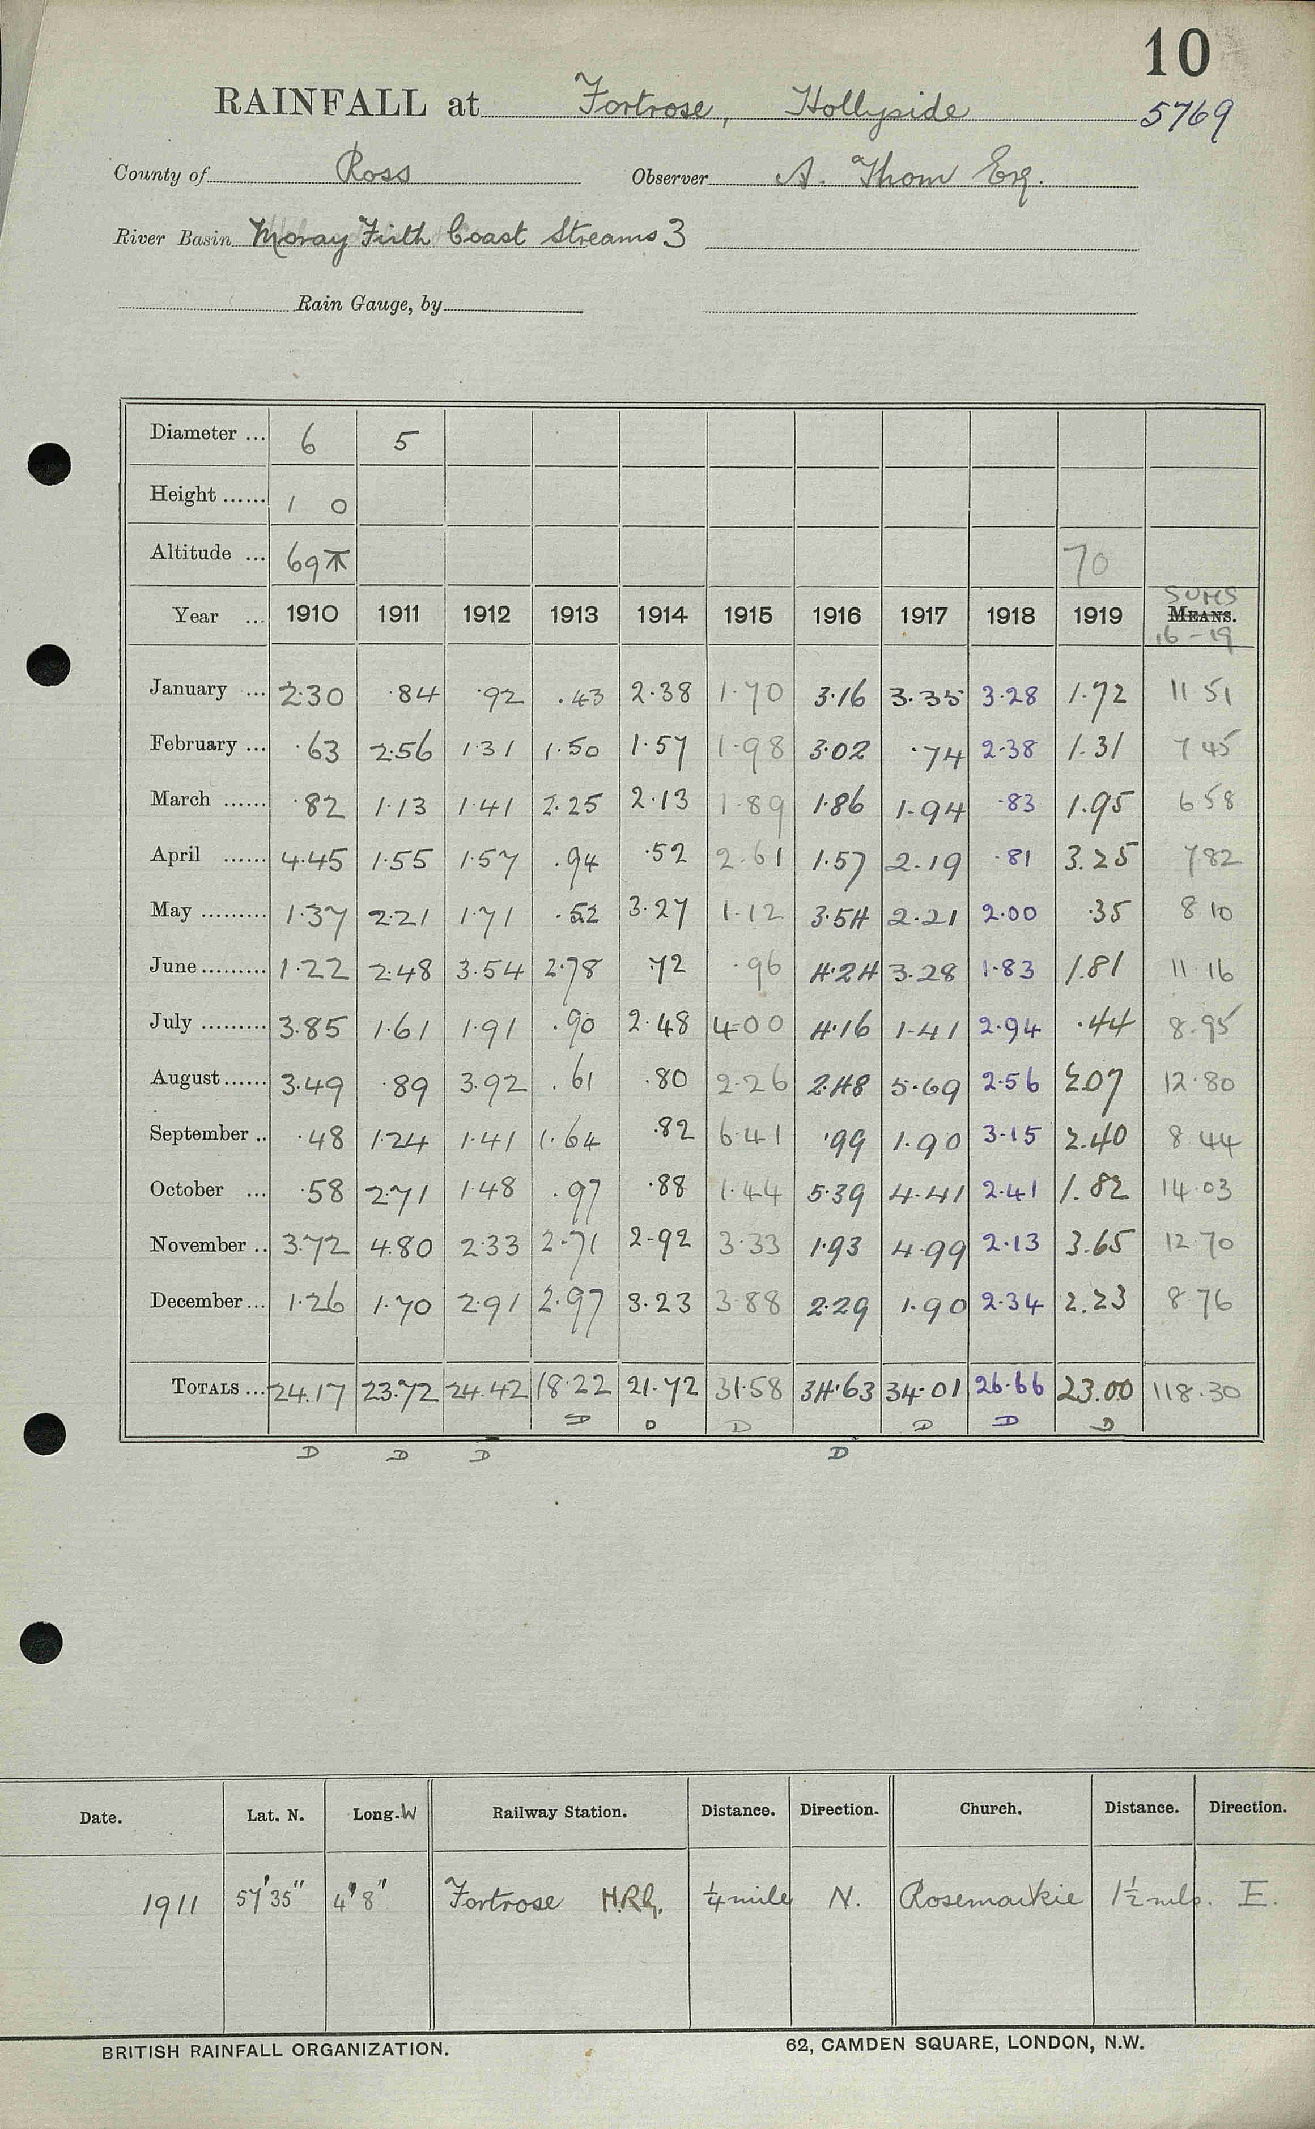 10
RAINFALL at Fortrose, Hollyside 5769
County of Ross Observer A. Thom Esq.
River Basin Moray Firth Coast Streams 3
Rain Gauge, by
Diameter ... 6 5
Height ...... 1 0
Altitude ... 69 70
SUMS
Year ... 1910 1911 1912 1913 1914 1915 1916 1917 1918 1919 MEANS.
16-19
January ... 2.30 .84 .92 .43 2.38 1.70 3.16 3.35 3.28 1.72 11 51
February ... .63 2.56 1.31 1.50 1.57 1.98 3.02 .74 2.38 1.31 7 45
March ...... .82 1.13 1.41 2.25 2.13 1.89 1.86 1.94 .83 1.95 6 58
April ...... 4.45 1.55 1.57 .94 .52 2.61 1.57 2.19 .81 3.25 7 82
May ......... 1.37 2.21 1.71 .52 3.27 1.12 3.54 2.21 2.00 .35 8 10
June ......... 1.22 2.48 3.54 2.78 .72 .96 4.24 3.28 1.83 1.81 11 16
July ......... 3.85 1.61 1.91 .90 2.48 4.00 4.16 1.41 2.94 .44 8.95
August ...... 3.49 .89 3.92 .61 .80 2.26 2.48 5.69 2.56 2.07 12.80
September .. .48 1.24 1.41 1.64 .82 6.41 .99 1.90 3.15 2.40 8 44
October ... .58 2.71 1.48 .97 .88 1.44 5.39 4.41 2.41 1.82 14.03
November .. 3.72 4.80 2.33 2.71 2.92 3.33 1.93 4.99 2.13 3.65 12 70
December ... 1.26 1.70 2.91 2.97 3.23 3.88 2.29 1.90 2.34 2.23 8 76
TOTALS ... 24.17 23.72 24.42 18.22 21.72 31.58 34.63 34.01 26.66 23.00 118.30
D D D D D D
D D D D
Date. Lat. N. Long. W Railway Station. Distance. Direction. Church. Distance. Direction.
1911 57°35" 4°8' Fortrose H.R. ¼ mile N. Rosemarkie 1½ mls. E.
BRITISH RAINFALL ORGANIZATION. 62, CAMDEN SQUARE, LONDON, N.W.